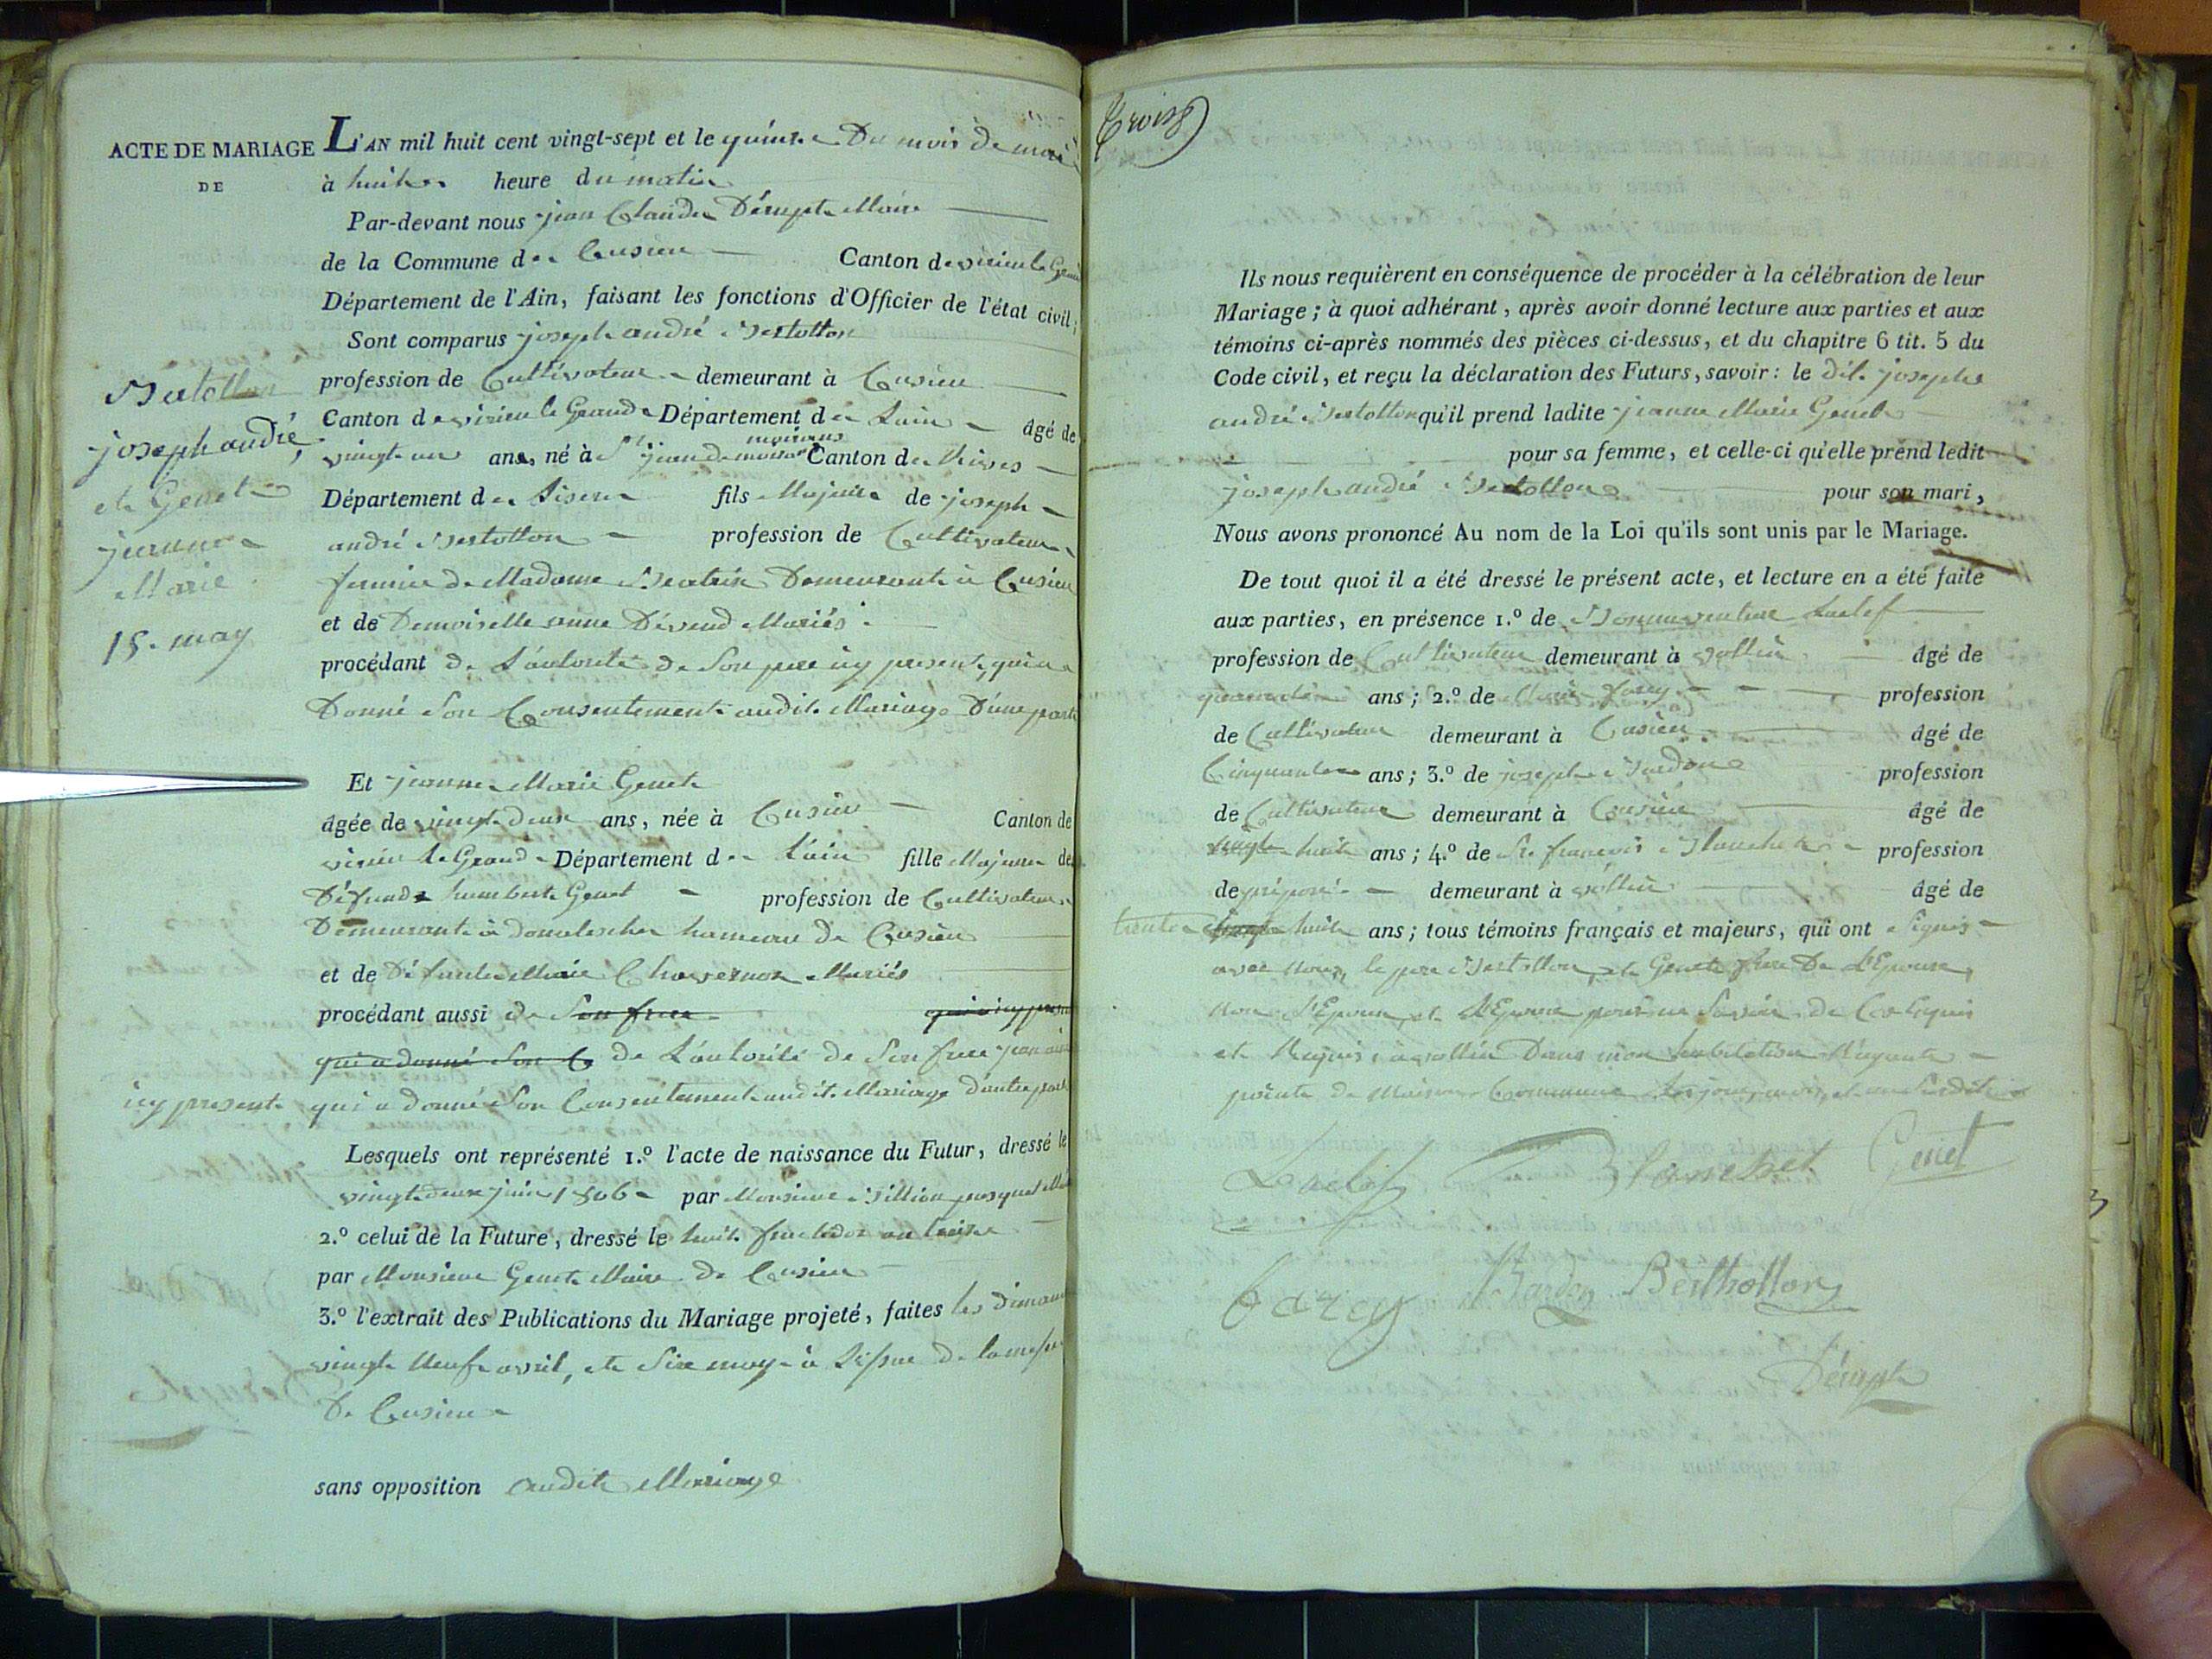 ACTE DE MARIAGE
DE
Bertollon
joseph andré,
et Genet
jeanne
Marie
15. may
L'AN mil huit cent vingt-sept et le quinze Du mois de mai
à huit heure du matin
Par-devant nous jean Claude Dérupt Maire
de la Commune de Cusieu Canton de virieu le Grand
Département de l'Ain, faisant les fonctions d'Officier de l'état civil;
Sont comparus joseph andré Bertollon
profession de Cultivateur demeurant à Cusieu
Canton de virieu le Grand Département de Lain âgé de
vingt un ans, né à St jean de moirans Canton de Rives
Département de Lisere fils Majeur de joseph
andré Bertollon profession de Cultivateur
fermier de Madame Beatrix Demeurant à Cusieu
et de Demoiselle anne Mariés
procédant de L'autorité de Son pere icy present, qui a
Donné Son Consentement audit Mariage D'une part
Et jeanne Marie Genet
âgée de vingt deux ans, née à Cusieu Canton de
virieu le Grand Département de Lain fille Majeure de
Défunt humbert Genet profession de Cultivateur
Demeurant à hameau de Cusieu
et de Défunte Marie Chavernoz Mariés
procédant aussi de Son frere
qui a donné Son de L'autorité de Son frere
icy present qui a donné Son Consentement audit Mariage d'autre part
Lesquels ont représenté 1.º l'acte de naissance du Futur, dressé le
vingt deux juin 1806 par Monsieur
2.º celui de la Future, dressé le huit fructidor an treize
par Monsieur Genet Maire de Cusieu
3.º l'extrait des Publications du Mariage projeté, faites les dimanche
vingt Neuf avril, et Six may à Lissue de la messe
De Cusieu
sans opposition audit Mariage
Trois
Ils nous requièrent en conséquence de procéder à la célébration de leur
Mariage; à quoi adhérant, après avoir donné lecture aux parties et aux
témoins ci-après nommés des pièces ci-dessus, et du chapitre 6 tit. 5 du
Code civil, et reçu la déclaration des Futurs, savoir: le dit joseph
andré Bertollon qu'il prend ladite jeanne Marie Genet
pour sa femme, et celle-ci qu'elle prend ledit
joseph andré Bertollon pour son mari,
Nous avons prononcé Au nom de la Loi qu'ils sont unis par le Mariage.
De tout quoi il a été dressé le présent acte, et lecture en a été faite
aux parties, en présence 1.º de Bonnaventure Laclef
profession de Cultivateur demeurant à vollin âgé de
quarante ans; 2.º de profession
de Cultivateur demeurant à Cusieu âgé de
Cinquante ans; 3.º de joseph Bardon profession
de Cultivateur demeurant à Cusieu âgé de
vingt huit ans; 4.º de Sr. francois Blanchet profession
de préposé demeurant à vollin âgé de
trente huit ans; tous témoins français et majeurs, qui ont Signés
avec Nous, le pere Bertollon, et Genet frere De L'Epouse,
Non L'Epoux, et L'Epouse pour ne Savoir de Ce Enquis
et Requis, à vollin Dans mon habitation N'ayant
point de Maison Commune Les jour, mois, et an Susdits
Laclef Blanchet Genet
Carey Bardon Berthollon
Dérupt